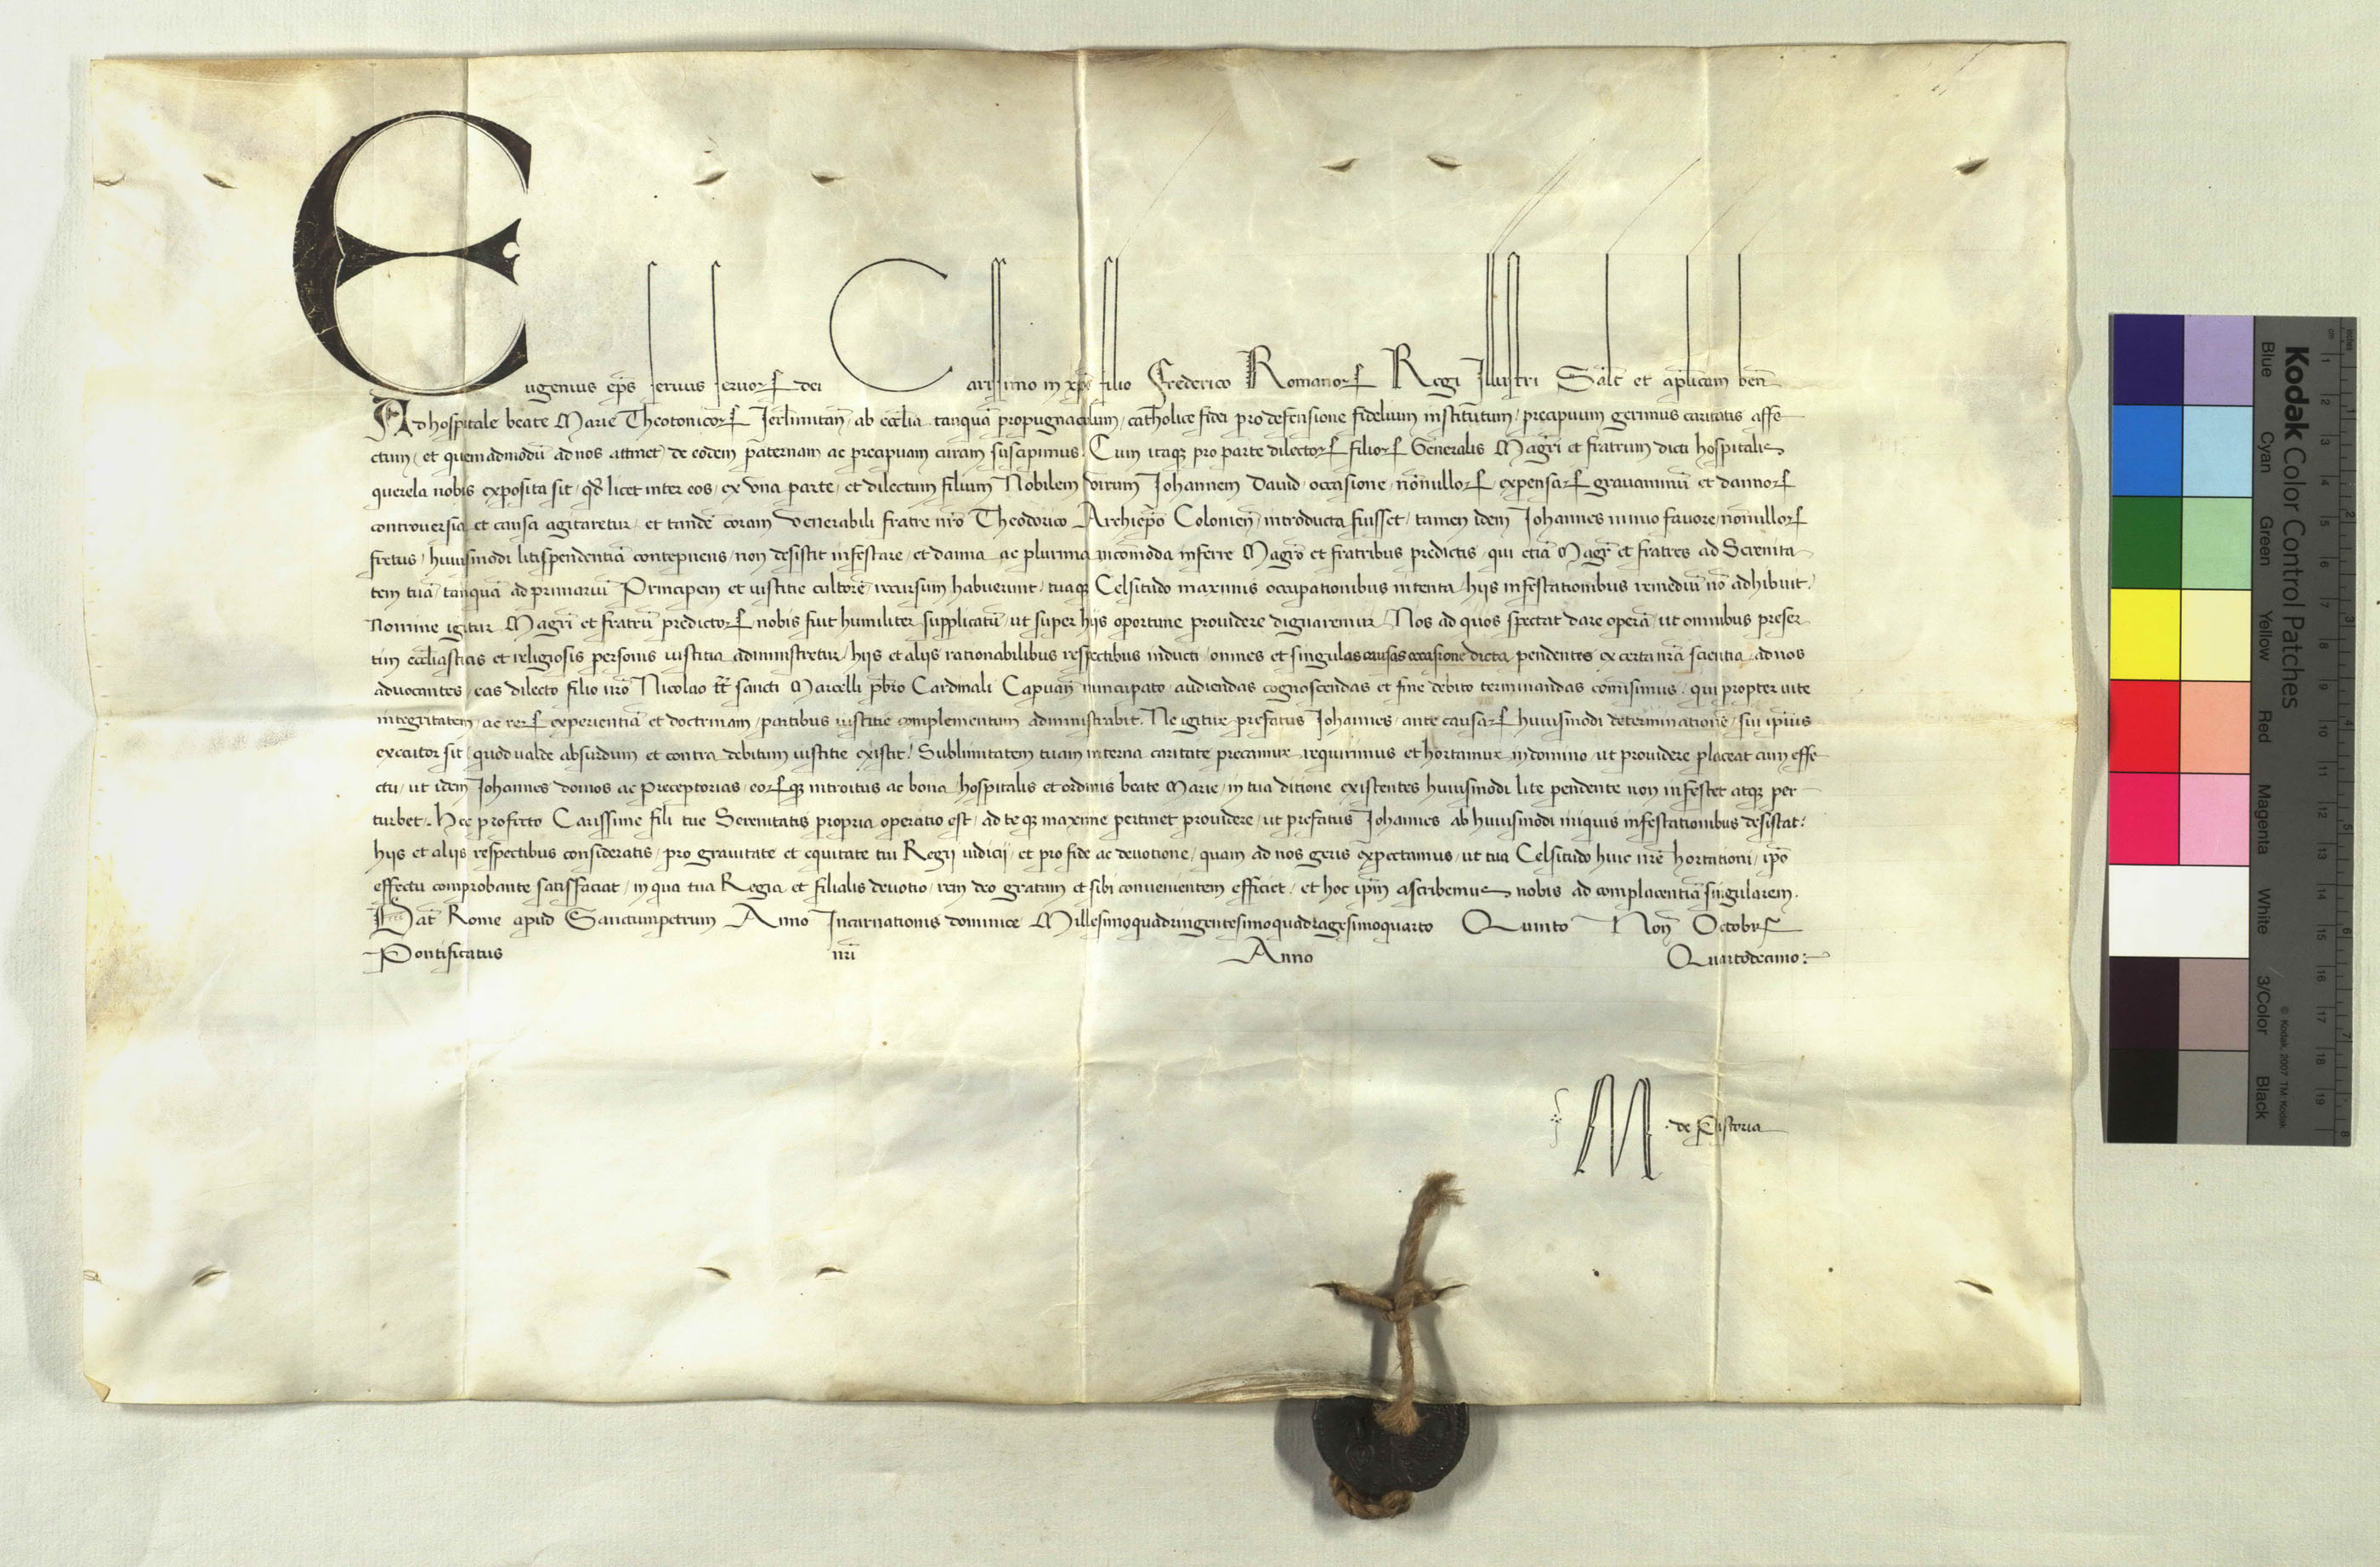 Eugenius ep̄s seruus seruoꝝ dei Carissimo in xp̄o filio Frederico Romanoꝝ Regi Illustri Salt̄ et ap̄licam ben̄
Ad hospitale beate Marie Theotonicoꝝ Ierl̄imitan̄ / ab eccl̄ia tanquā propugnaculum / catholice fidei pro defensione fidelium institutum / precipuum gerimus caritatis affe-
ctum / et quemadmodū ad nos attinet de eodem paternam ac precipuam curam suscipimus. Cum itaqꝫ pro parte dilectoꝝ filioꝝ Generalis Magr̄i et fratrum dicti hospitalis
querela nobis exposita sit / qd̄ licet inter eos / ex vna parte / et dilectum filium Nobilem virum Johannem Dauid / occasione / nōnulloꝝ / expensaꝝ grauaminū et dannoꝝ
controuersia et causa agitaretur / et tandē coram venerabili fratre nr̄o Theodorico Archiep̄o Colonien̄ / introducta fuisset / tamen idem Johannes nimio fauore / nōnulloꝝ
fretus / huiusmodi litispendentiā contepnens / non desistit infestare / et damna ac plurima incōmoda inferre Magr̄o et fratribus predictis / qui etiā Magr̄ et fratres ad Serenita-
tem tuā / tanquā ad primariū Principem et iustitie cultorē / recursum habuerunt / tuaqꝫ Celsitudo maximis occupationibus intenta / hijs infestationibus remediū nō adhibuit.
Nomine igitur Magr̄i et fratrū predictoꝝ nobis fuit humiliter supplicatū / ut super hijs oportune prouidere dignaremur. Nos ad quos spectat dare operā / ut omnibus preser-
tim eccl̄iasticis et religiosis personis iustitia administretur / hijs et alijs rationabilibus respectibus inducti / omnes et singulas causas occasione dicta pendentes ex certa nr̄a scientia ad nos
aduocantes / eas dilecto filio nr̄o Nicolao tt̄ sancti Marcelli pb̄ro Cardinali Capuan̄ nuncupato / audiendas cognoscendas et fine debito terminandas cōmisimus / qui propter uite
integritatem / ac reꝝ experientiā et doctrinam / partibus iustitie complementum administrabit. Ne igitur prefatus Johannes / ante causaꝝ huiusmodi determinationē / sui ip̄ius
executor sit / quod ualde absurdum et contra debitum iustitie existit / Sublimitatem tuam interna caritate precamur requirimus et hortamur in domino / ut prouidere placeat cum effe-
ctu / ut idem Johannes domos ac preceptorias / eoꝝqꝫ introitus ac bona hospitalis et ordinis beate Marie / in tua ditione existentes huiusmodi lite pendente non infestet atqꝫ per-
turbet. Hec profecto Carissime fili tue Serenitatis propria operatio est / ad teqꝫ maxime pertinet prouidere / ut prefatus Johannes ab huiusmodi iniquis infestationibus desistat.
hijs et alijs respectibus consideratis / pro grauitate et equitate tui Regij iudicij / et pro fide ac deuotione / quam ad nos geris expectamus / ut tua Celsitudo huic nr̄e hortationi / ip̄o
effectu comprobante satisfaciat / in qua tua Regia et filialis deuotio / rem deo gratam et sibi conuenientem efficiet / et hoc ip̄m ascribemus nobis ad complacentiā singularem.
Dat̄ Rome apud Sanctumpetrum Anno Incarnationis dominice Millesimoquadringentesimoquadragesimoquarto Quinto Non̄ Octobrꝭ
Pontificatus nr̄i Anno Quartodecimo:-
M · de Pistoria
Kodak Color Control Patches
© Kodak, 2007 TM: Kodak
Blue Cyan Green Yellow Red Magenta White 3/Color Black
inches 1 2 3 4 5 6 7 8
cm 1 2 3 4 5 6 7 8 9 10 11 12 13 14 15 16 17 18 19